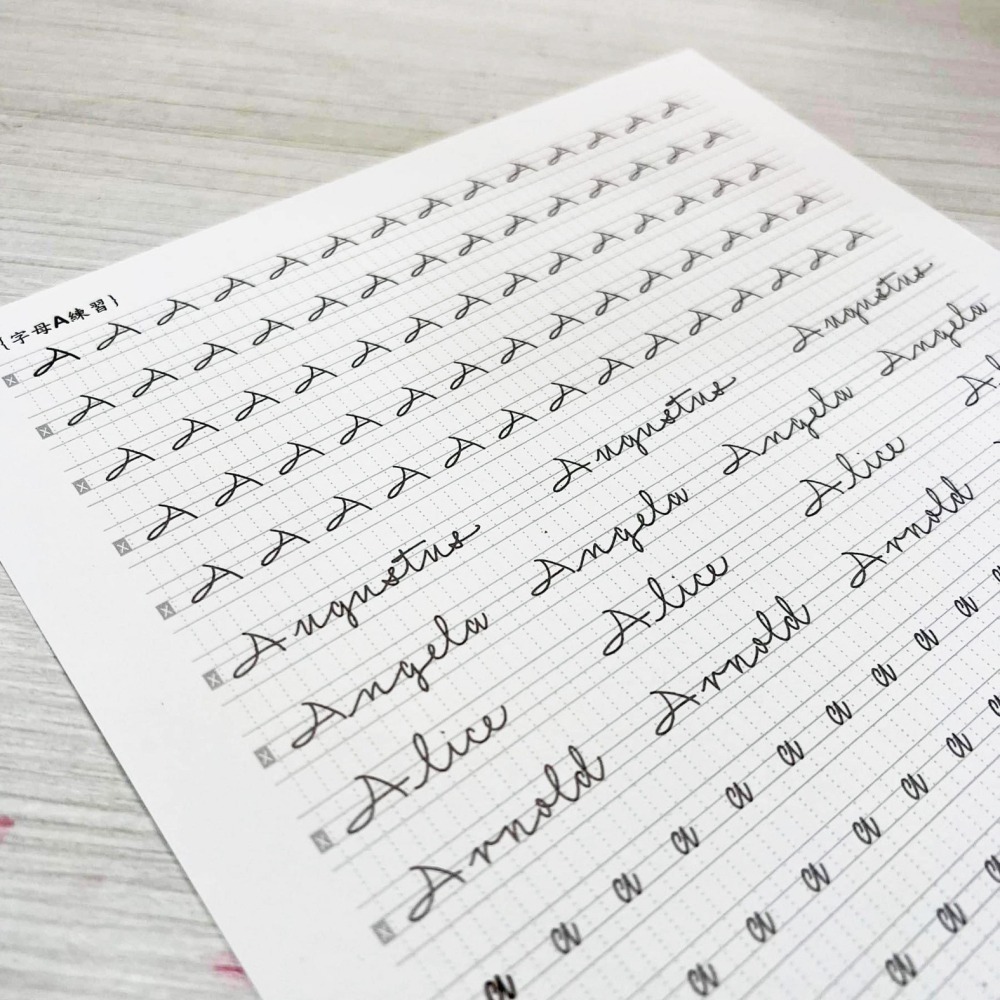 {字母A練習}
A A A A A A A A A A A A A A
A A A A A A A A A A A A A A
A A A A A A A A A A A A A A
A A A A A A A A A A A A A A
A A A A A A A A A A A A A A
Augustus Augustus Augustus
Angela Angela Angela Angela
Alice Alice Alice Al
Arnold Arnold Arnold
a a a a a a a a a a
a a a a a a
a a